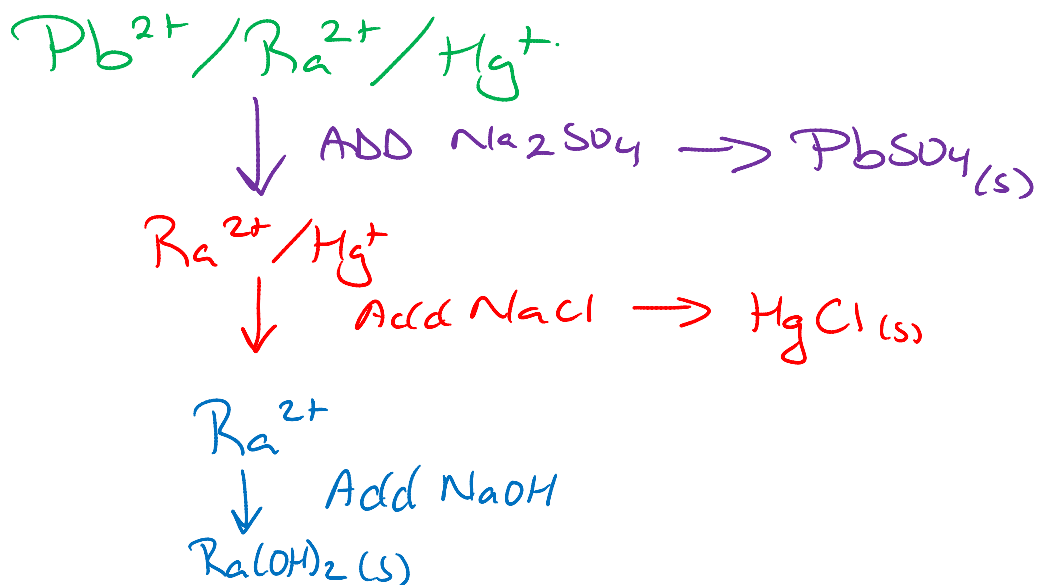 Pb²⁺/Ra²⁺/Hg⁺.
ADD Na₂SO₄ → PbSO₄(s)
Ra²⁺/Hg⁺
Add NaCl → HgCl(s)
Ra²⁺
Add NaOH
Ra(OH)₂(s)